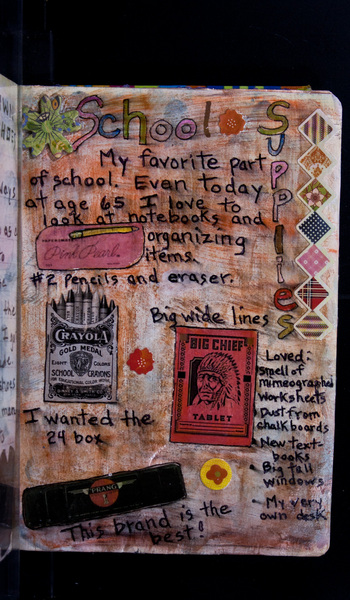 School
Supplies
My favorite part
of school. Even today
at age 65 I love to
look at notebooks and
organizing
items.
Pink Pearl
#2 pencils and eraser.
CRAYOLA
GOLD MEDAL
EIGHT COLORS
SCHOOL CRAYONS
FOR EDUCATIONAL COLOR WORK
I wanted the
24 box
Big wide lines
BIG CHIEF
TABLET
Loved:
smell of
mimeographed
worksheets
Dust from
chalkboards
• New text-
books
• Big tall
windows
• My very
own desk
PRANG
This brand is the
best!